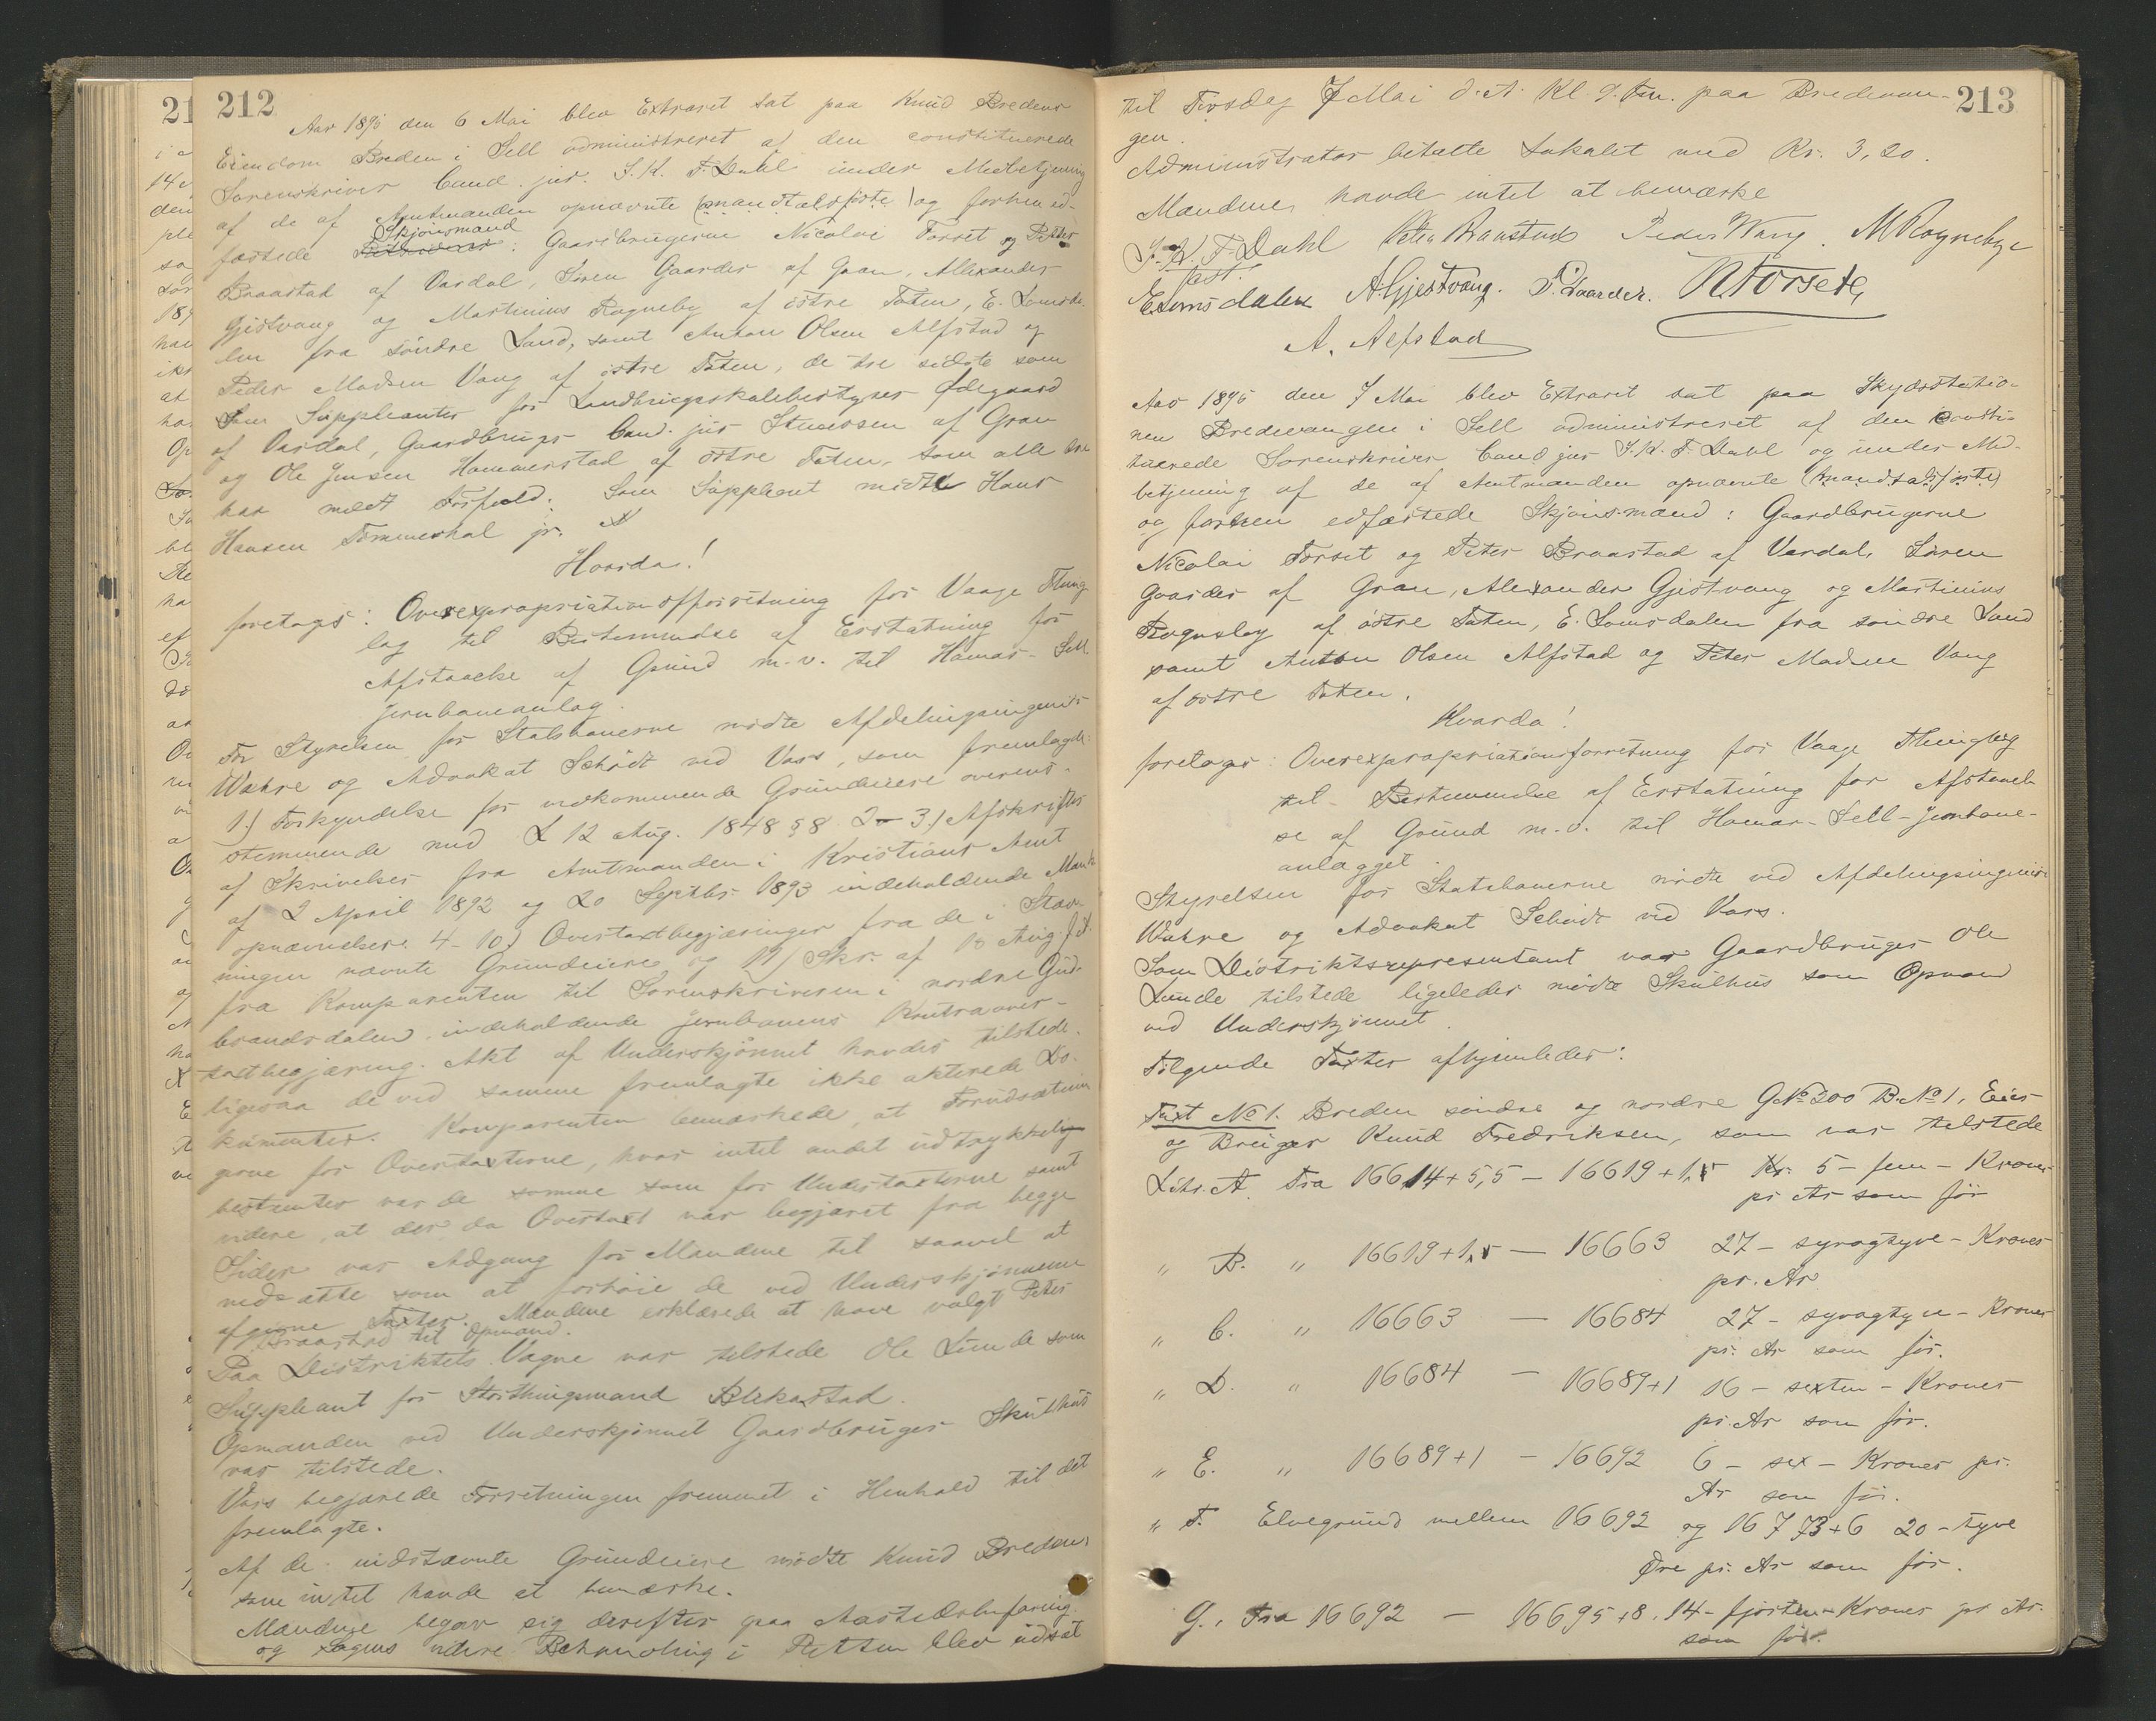 212
Aar 1895 den 6 Mai blev Extraret sat paa Knud Bredens
Eiendom Breden i Sell administreret af den constituerede
Sorenskriver Cand. jur. J. K. F. Dahl under Medbetjening
af de af Amtmanden opnævnte (mandtalsførte) og forhen ed-
Skjønsmænd
fæstede : Gaardbrugerne Nicolai Forset og Petter
Braastad af Vardal, Søren Gaarder af Gran, Allexander
Gjestvang og Martinius Rogneby af östre Toten, E. Lomsda-
len fra söndre Land, samt Anton Olsen Alfstad og
Peder Madsen Vang af östre Toten, de tre sidste som
Suppleanter for Landbrugsskolebestyrer Ødegaard
af Vardal, Gaardbruger Cand. jur. Stenersen af Gran
og Ole Jensen Hammerstad af östre Toten, som alle tre
har meldt Forfald. Som Suppleant mødte Hans
Hansen Tømmerhol jr.
Hvorda!
foretages: Overexpropriationsforretning for Vaage Thing
lag til Bestemmelse af Erstatning for
Afstaaelse af Grund m.v. til Hamar-Sell
Jernbaneanlæg.
For Styrelsen for Statsbanerne mødte Afdelingsingeniør
Wahre og Advokat Schiödt ved Vars, som fremlagde:
1.) Forkyndelse for vedkommende Grundeiere overens-
stemmende med L 12 Aug. 1848 § 8 2-3.) Afskrifter
af Skrivelser fra Amtmanden i Kristians Amt
af 2 April 1892 og 20 Septbr. 1893 indeholdende Mands
opnævnelser. 4-10) Overtaxtbegjæringer fra de i Stæv-
ningen nævnte Grundeiere og 11) Skr. af 10 Aug. f. A.
fra Komparenten til Sorenskriveren i nordre Gud-
brandsdalen indeholdende Jernbanens Kontraover-
taxtbegjæring. Akt af Underskjønnet havdes tilstede.
ligesaa de ved samme fremlagte ikke akterede Do-
kumenter. Komparenten bemærkede, at Forudsætnin
gerne for Overtaxterne, hvor intet andet udtrykkelig
bestemtes var de samme som for Undertaxterne samt
videre, at der da Overtaxt var begjæret fra begge
Sider var Adgang for Mændene til saavel at
nedsætte som at forhøie de ved Underskjønnene
afgivne Taxter. Mændene erklærede at have valgt Peter
Braastad til Opmand.
Paa Distriktets Vegne var tilstede Ole Lunde som
Suppleant for Storthingsmand Blekastad.
Opmanden ved Underskjønnet Gaardbruger Skulhus
var tilstede.
Vars begjærede Forretningen fremmet i Henhold til det
fremlagte.
Af de indstævnte Grundeiere mødte Knud Breden
som intet havde at bemærke.
Mændene begav sig derefter paa Aastedsbefaring
og Sagens videre Behandling i Retten blev udsat
213
til Tirsdag 7 Mai d. A. Kl. 9. Fm. paa Bredevan-
gen.
Administrator betalte Lokalet med Kr. 3,20.
Mændene havde intet at bemærke
J. K. F. Dahl Peter Braastad Peder Wang. M Rogneby
kst.
E Lomsdalen A. Gjestvang. S. Gaarder. N Forseth,
A. Alfstad
Aar 1895 den 7 Mai blev Extraret sat paa Skydsstatio-
nen Bredevangen i Sell administreret af den consti-
tuerede Sorenskriver Cand jur J. K. F. Dahl og under Med-
betjening af de af Amtmanden opnævnte (mandtalsførte)
og forhen edfæstede Skjønsmænd: Gaardbrugerne
Nicolai Forset og Peter Braastad af Vardal, Søren
Gaarder af Gran, Alexander Gjestvang og Martinius
Rognsby af östre Toten, E. Lomsdalen fra søndre Land
samt Anton Olsen Alfstad og Peter Madsen Vang
af östre Toten.
Hvorda!
foretages: Overexpropriationsforretning for Vaage Thinglag
til Bestemmelse af Erstatning for Afstaael-
se af Grund m.v. til Hamar-Sell-Jernbane-
anlægget.
Styrelsen for Statsbanerne mødte ved Afdelingsingeniør
Wahre og Advokat Schiödt ved Vars.
Som Distriktsrepresentant var Gaardbruger Ole
Lunde tilstede ligeledes mødte Skulhus som Opmand
ved Underskjønnet.
Følgende Taxter afhjemledes:
Taxt No 1. Breden søndre og nordre G.No 200 B.No 1, Eier
og Bruger Knud Fredriksen, som var tilstede
Litr. A. Fra 16614+5,5 — 16619+1,5 Kr. 5 - fem - Kroner
pr Ar som før
" B. " 16619+1,5 — 16663 27 - syvogtyve - Kroner
pr. Ar
" C. " 16663 — 16684 27 - syvogtyve - Kroner
pr. Ar som før.
" D. " 16684 — 16689+1 16 - sexten - Kroner
pr. Ar som før.
" E. " 16689+1 — 16692 6 - sex - Kroner pr.
Ar som før.
" F. Elvegrund mellem 16692 og 16773+6 20 - tyve
Øre pr. Ar som før.
G. Fra 16692 — 16695+8. 14 - fjorten - Kroner pr Ar.
som før.